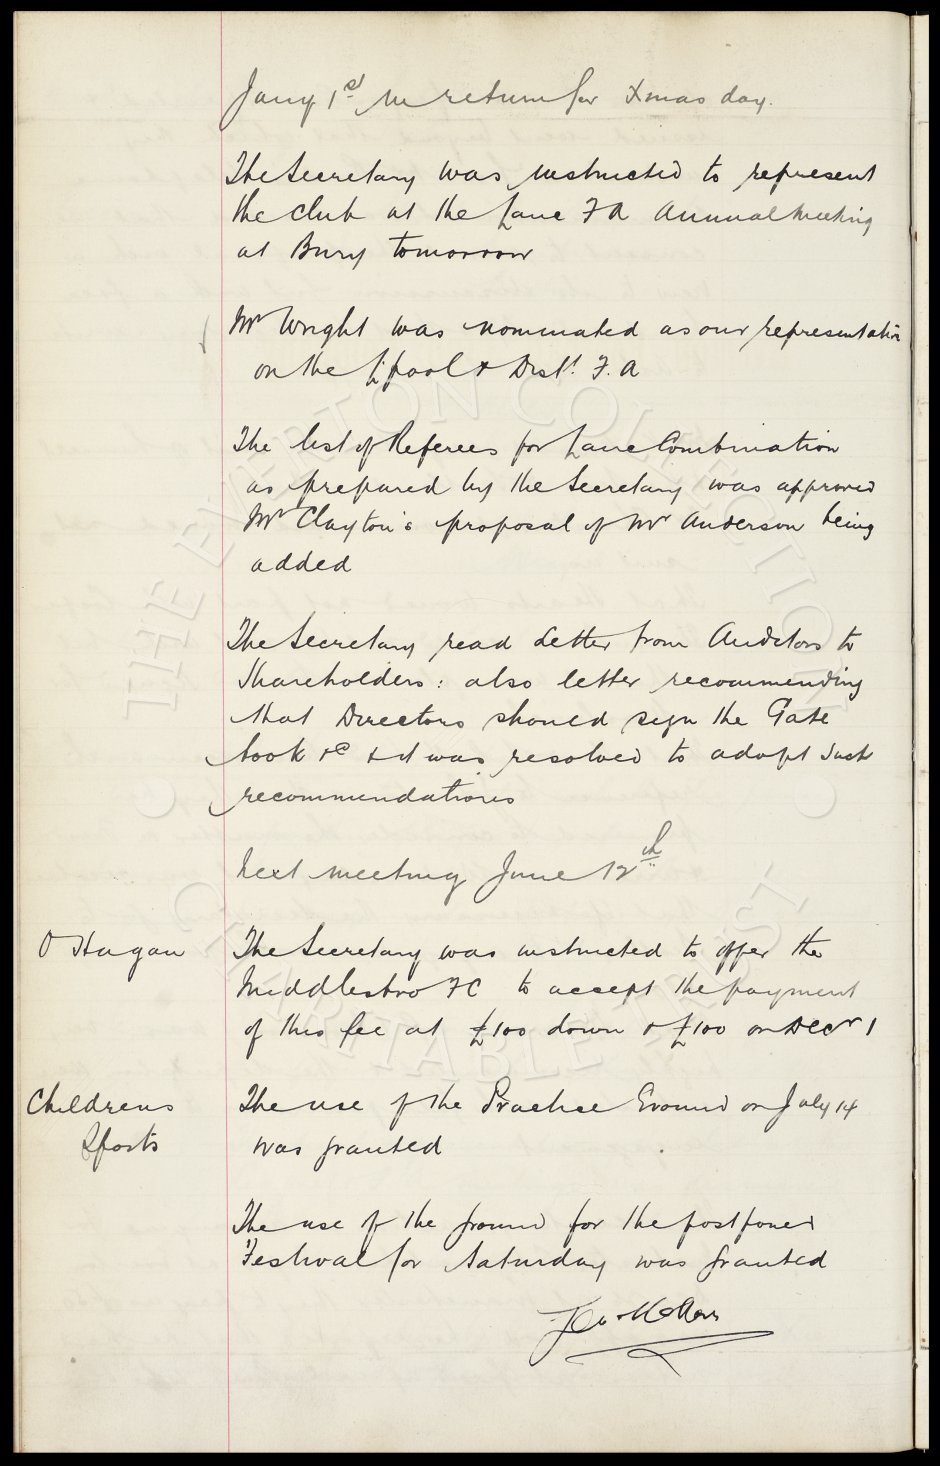 Jany 1st in return for Xmas day.
The Secretary was instructed to represent
the club at the Lanc F A Annual Meeting
at Bury tomorrow
Mr Wright was nominated as our representative
on the L'pool & Dist. F. A
The list of Referees for Lanc Combination
as prepared by the Secretary was approved
Mr Clayton's proposal of Mr Anderson being
added
The Secretary read letter from Auditors to
Shareholders: also letter recommending
that Directors should sign the Gate
book &c & it was resolved to adopt such
recommendations
Next meeting June 12th
O Hagan
The Secretary was instructed to offer the
Middlesbro FC to accept the payment
of this fee at £100 down & £100 on Decr 1
Childrens
Sports
The use of the Practice Ground on July 14
was granted
The use of the ground for the postponed
Festival for Saturday was granted
THE EVERTON COLLECTION
CHARITABLE TRUST